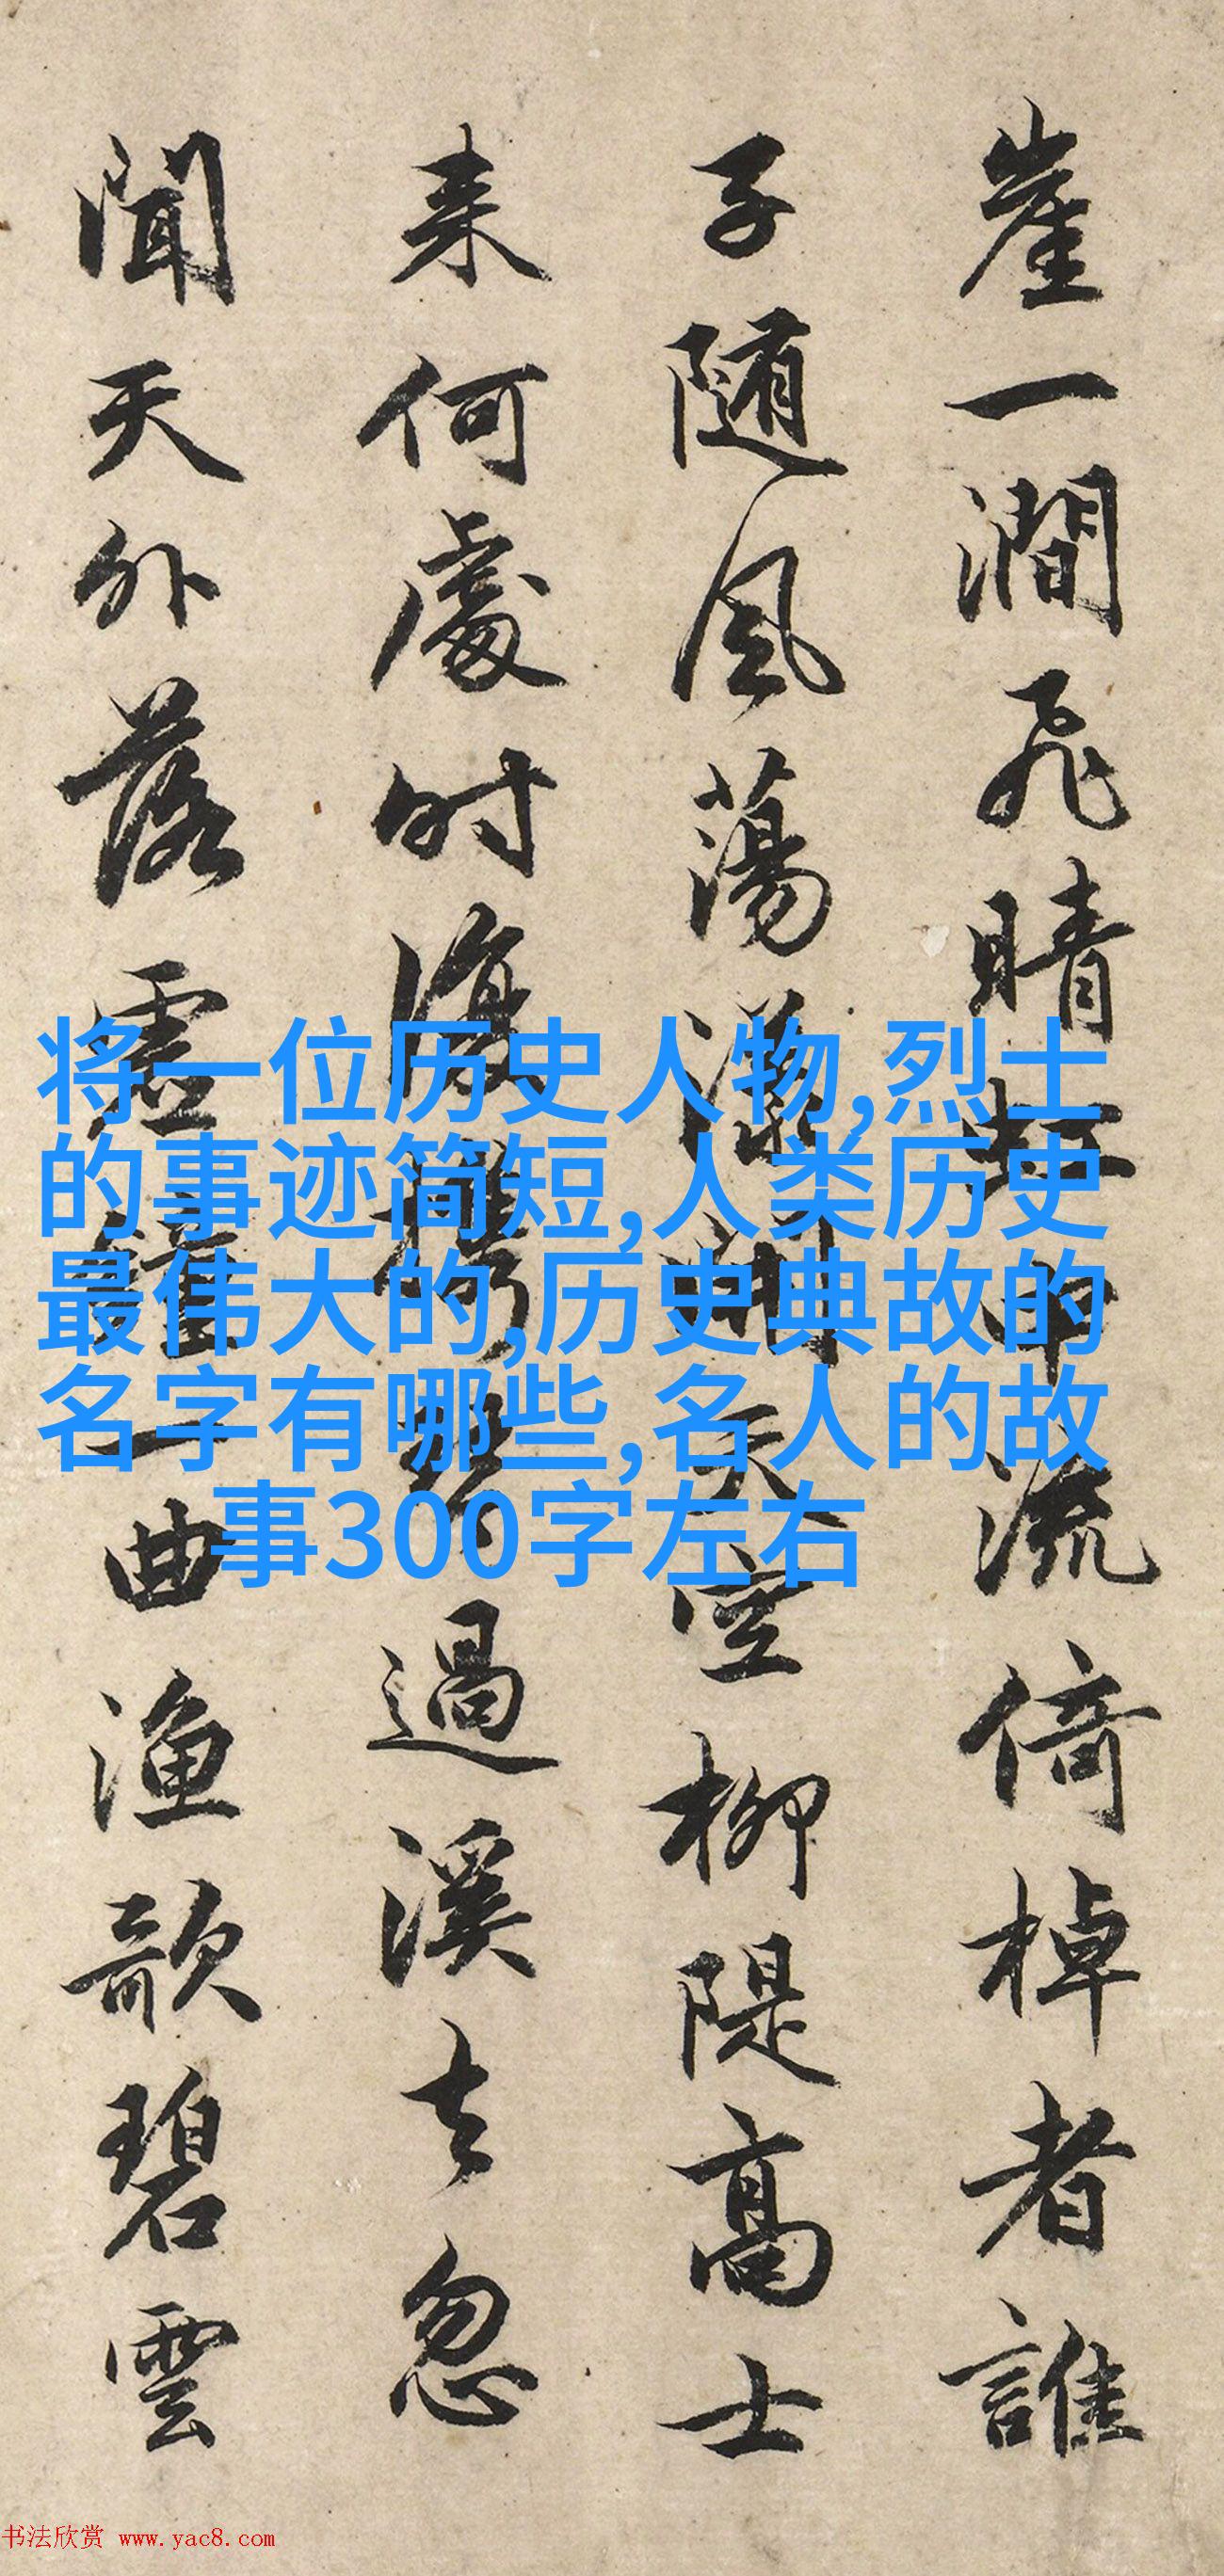 崖一澗飛晴虹中流倚棹者誰
子随風蕩漾湖天空柳隄高士
来何處時復攜琴過溪去忽
聞天外落一曲漁歌碧雲
将一位历史人物,烈士
的事迹简短,人类历史
最伟大的,历史典故的
名字有哪些,名人的故
事300字左右
书法欣赏 www.yac8.com